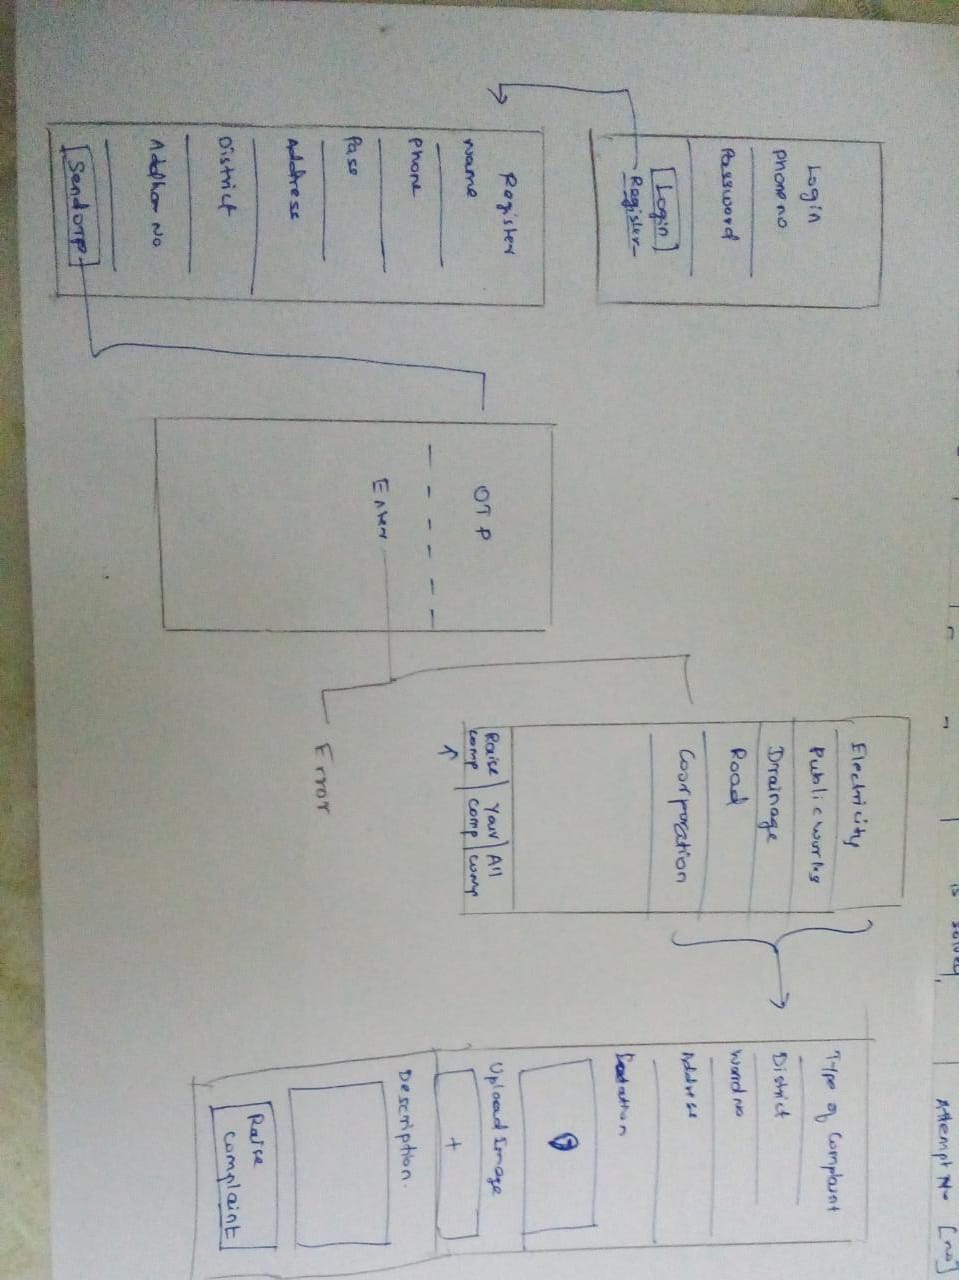 is solved,
Attempt No [no]
Login
Phone no
Password
Login
Register
Register
Name
Phone
Pass
Address
District
Addhar No
Send OTP
OTP
Enter
Error
Electricity
Public works
Drainage
Road
Coorporation
Raise comp
Your comp
All comp
Type of Complaint
District
Ward No
Address
Upload Image
+
Description.
Raise
Complaint